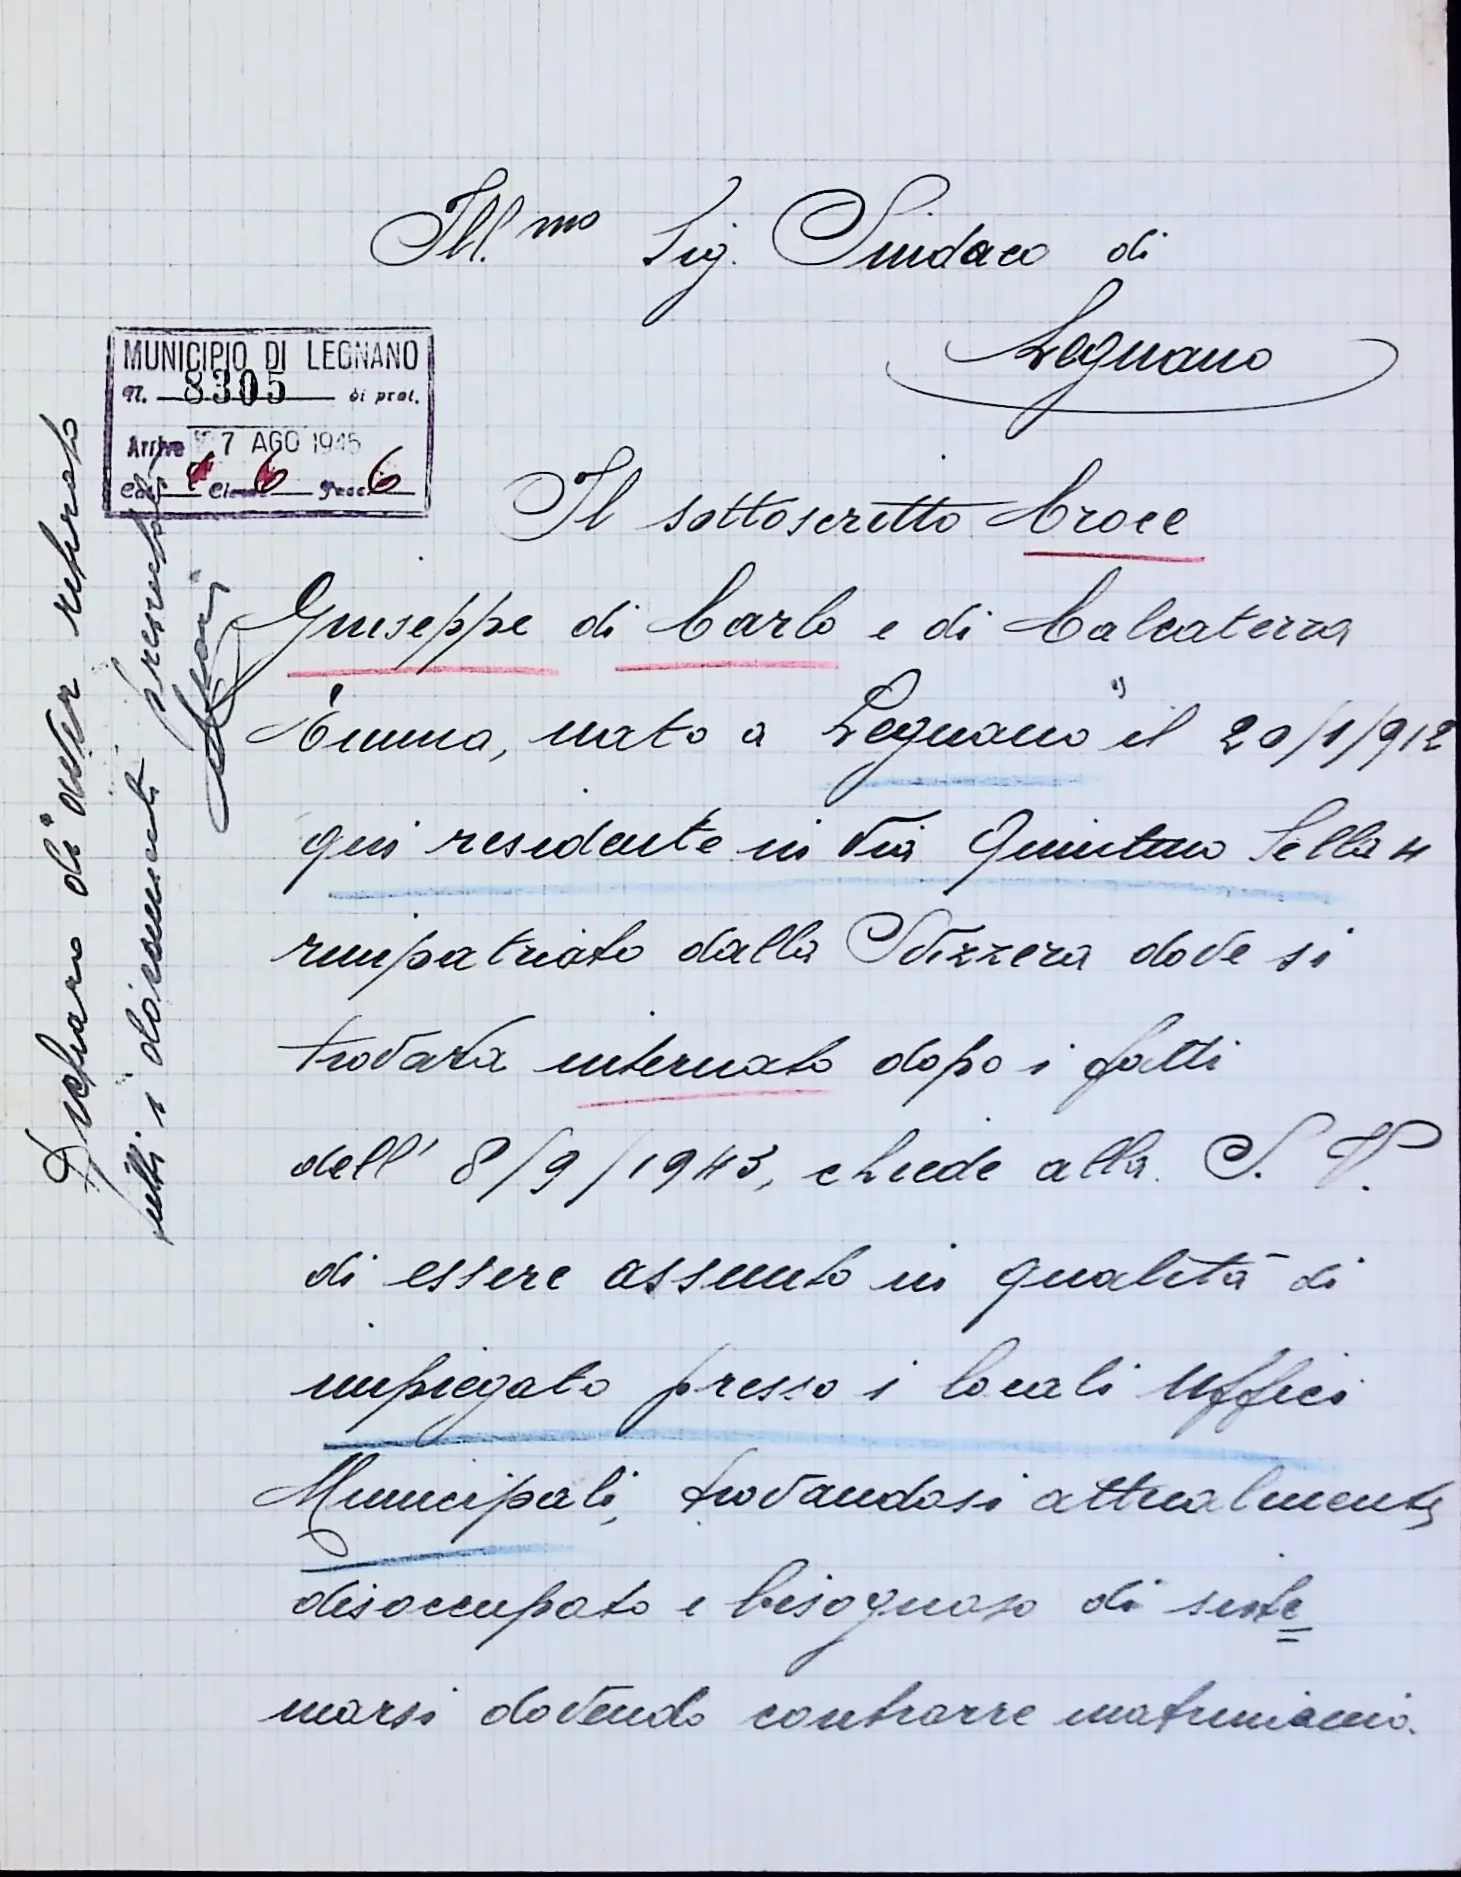 Ill.mo Sig. Sindaco di
Legnano
MUNICIPIO DI LEGNANO
N. 8305 di prot.
Arrivo 7 AGO 1945
Cat. Class. 6 Fasc. 6
Il sottoscritto Croce
Giuseppe di Carlo e di Calcaterra
Emma, nato a Legnano il 20/1/912
qui residente in Via Quintino Sella 4
rimpatriato dalla Svizzera dove si
trovava internato dopo i fatti
dell' 8/9/1943, chiede alla S. V.
di essere assunto in qualità di
impiegato presso i locali Uffici
Municipali, trovandosi attualmente
disoccupato e bisognoso di siste
marsi dovendo contrarre matrimonio.
Dichiaro di aver ritirato
tutti i documenti presentati